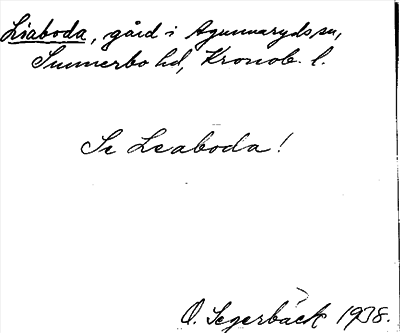 Liaboda, gård i Agunnaryds sn,
Sunnerbo hd, Kronob. l.
Se Leaboda!
O. Segerbäck 1938.